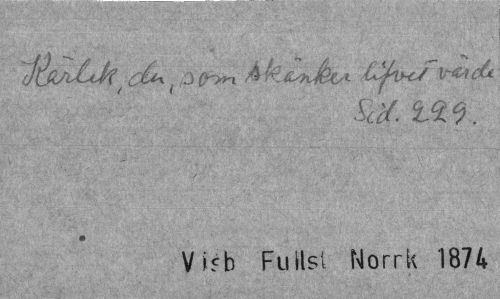 Kärlek, du, som skänker lifvet värde
Sid. 229.
Visb Fullst Norrk 1874